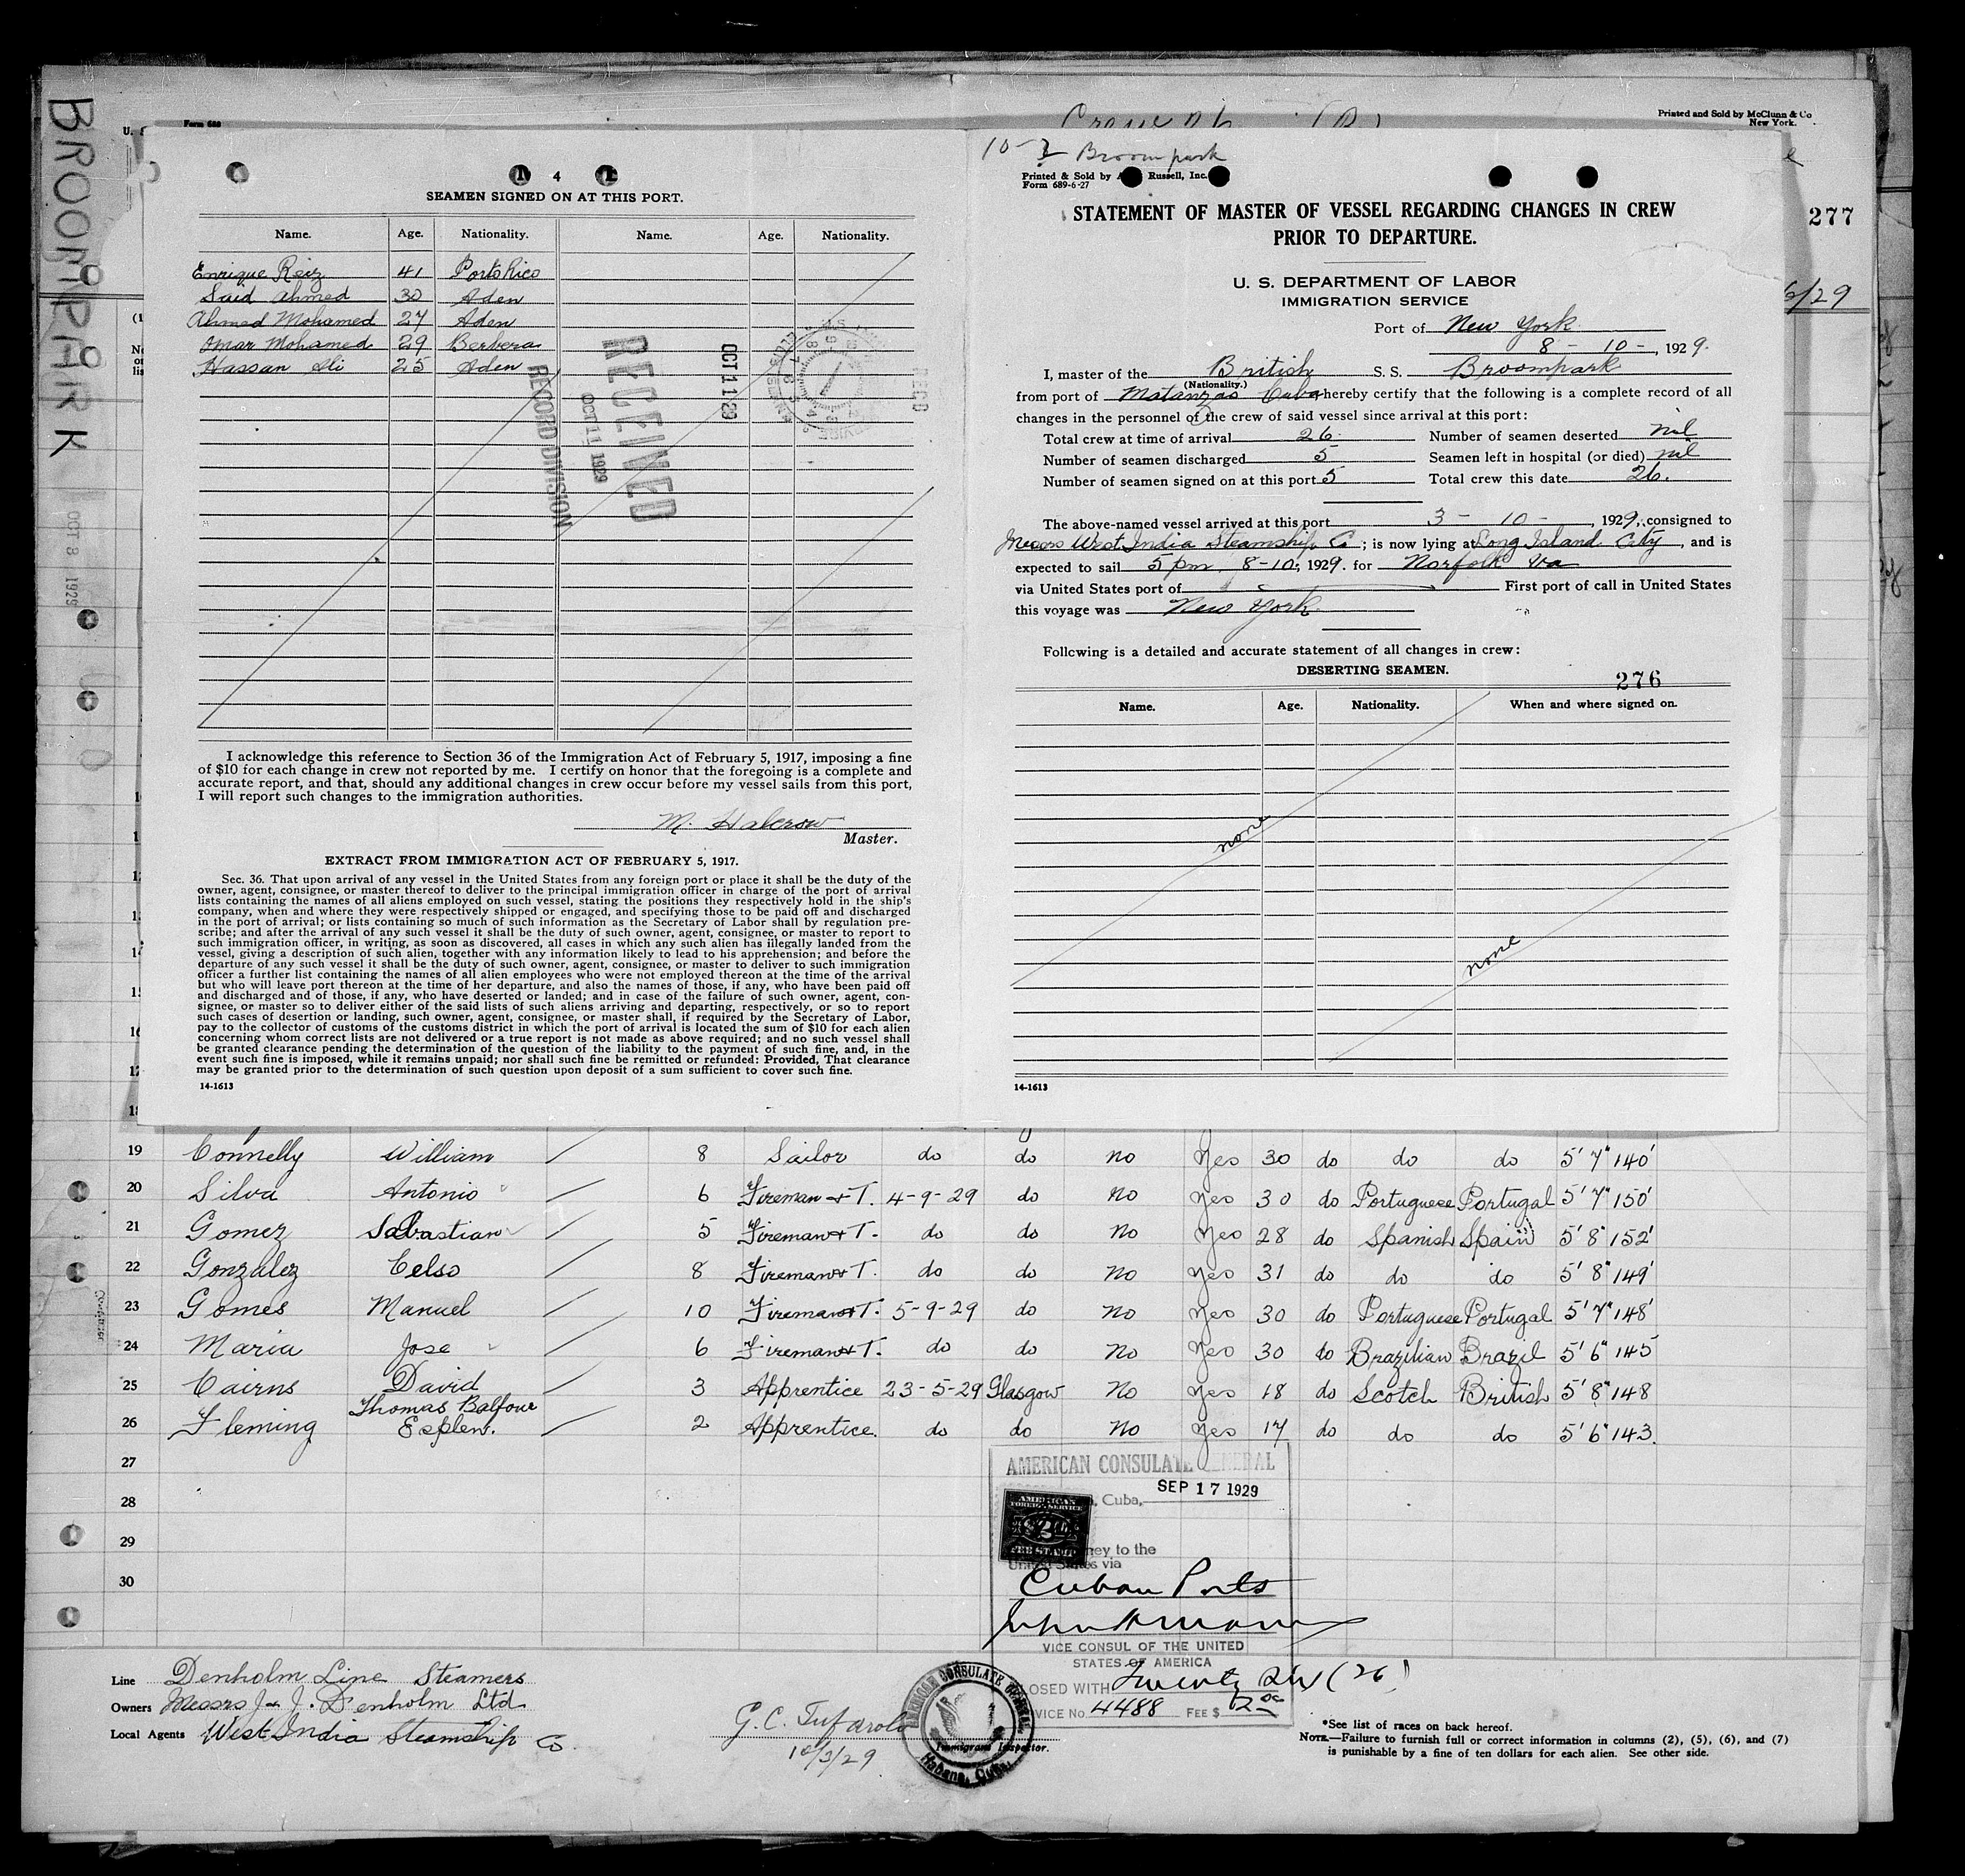 BROOMPARK
OCT 8 1929
Form 689
U. S
Printed and Sold by McClunn & Co
New York.
277
6/29
4
SEAMEN SIGNED ON AT THIS PORT.
Name. Age. Nationality. Name. Age. Nationality.
Enrique Reiz 41 Porto Rico
Said Ahmed 30 Aden
Ahmed Mohamed 27 Aden
Omar Mohamed 29 Berbera
Hassan Ali 25 Aden
RECORD DIVISION
OCT 11 1929
RECEIVED
OCT 11 29
RECD
I acknowledge this reference to Section 36 of the Immigration Act of February 5, 1917, imposing a fine
of $10 for each change in crew not reported by me. I certify on honor that the foregoing is a complete and
accurate report, and that, should any additional changes in crew occur before my vessel sails from this port,
I will report such changes to the immigration authorities.
M. Halcrow
Master.
EXTRACT FROM IMMIGRATION ACT OF FEBRUARY 5, 1917.
Sec. 36. That upon arrival of any vessel in the United States from any foreign port or place it shall be the duty of the
owner, agent, consignee, or master thereof to deliver to the principal immigration officer in charge of the port of arrival
lists containing the names of all aliens employed on such vessel, stating the positions they respectively hold in the ship's
company, when and where they were respectively shipped or engaged, and specifying those to be paid off and discharged
in the port of arrival; or lists containing so much of such information as the Secretary of Labor shall by regulation pre-
scribe; and after the arrival of any such vessel it shall be the duty of such owner, agent, consignee, or master to report to
such immigration officer, in writing, as soon as discovered, all cases in which any such alien has illegally landed from the
vessel, giving a description of such alien, together with any information likely to lead to his apprehension; and before the
departure of any such vessel it shall be the duty of such owner, agent, consignee, or master to deliver to such immigration
officer a further list containing the names of all alien employees who were not employed thereon at the time of the arrival
but who will leave port thereon at the time of her departure, and also the names of those, if any, who have been paid off
and discharged and of those, if any, who have deserted or landed; and in case of the failure of such owner, agent, con-
signee, or master so to deliver either of the said lists of such aliens arriving and departing, respectively, or so to report
such cases of desertion or landing, such owner, agent, consignee, or master shall, if required by the Secretary of Labor,
pay to the collector of customs of the customs district in which the port of arrival is located the sum of $10 for each alien
concerning whom correct lists are not delivered or a true report is not made as above required; and no such vessel shall
be granted clearance pending the determination of the question of the liability to the payment of such fine, and, in the
event such fine is imposed, while it remains unpaid; nor shall such fine be remitted or refunded: Provided, That clearance
may be granted prior to the determination of such question upon deposit of a sum sufficient to cover such fine.
14-1613
10-3 Broompark
Printed & Sold by A Russell, Inc.
Form 689-6-27
STATEMENT OF MASTER OF VESSEL REGARDING CHANGES IN CREW
PRIOR TO DEPARTURE.
U. S. DEPARTMENT OF LABOR
IMMIGRATION SERVICE
Port of New York
8 - 10 -, 1929.
I, master of the British S. S. Broompark
(Nationality.)
from port of Matanzas Cuba hereby certify that the following is a complete record of all
changes in the personnel of the crew of said vessel since arrival at this port:
Total crew at time of arrival 26 Number of seamen deserted nil
Number of seamen discharged 5 Seamen left in hospital (or died) nil
Number of seamen signed on at this port 5 Total crew this date 26.
The above-named vessel arrived at this port 3 - 10 -, 1929, consigned to
Messrs West India Steamship Co; is now lying at Long Island City, and is
expected to sail 5 pm. 8-10, 1929. for Norfolk Va
via United States port of First port of call in United States
this voyage was New York
Following is a detailed and accurate statement of all changes in crew:
DESERTING SEAMEN.
276
Name. Age. Nationality. When and where signed on.
none
none
14-1613
19 Connelly William 8 Sailor do do no Yes 30 do do do 5' 7" 140'
20 Silva Antonio 6 Fireman + T. 4-9-29 do no Yes 30 do Portuguese Portugal 5' 7" 150'
21 Gomez Sabastian 5 Fireman + T. do do no Yes 28 do Spanish Spain 5' 8" 152'
22 Gonzalez Celso 8 Fireman + T. do do no Yes 31 do do do 5' 8" 149'
23 Gomes Manuel 10 Fireman + T. 5-9-29 do no Yes 30 do Portuguese Portugal 5' 7" 148'
24 Maria Jose 6 Fireman + T. do do No Yes 30 do Brazilian Brazil 5' 6" 145
25 Cairns David 3 Apprentice 23-5-29 Glasgow No Yes 18 do Scotch British 5' 8" 148
26 Fleming Thomas Balfour Esplen. 2 Apprentice. do do No Yes 17 do do do 5' 6" 143.
27
28
29
30
AMERICAN CONSULATE GENERAL
, Cuba, SEP 17 1929
AMERICAN
FOREIGN SERVICE
FEE STAMP
ney to the
United States via
Cuban Ports
VICE CONSUL OF THE UNITED
STATES OF AMERICA
LOSED WITH Twenty six (26)
VICE No. 4488 FEE $ 2.00
Line Denholm Line Steamers
Owners Messrs J. & J. Denholm Ltd.
Local Agents West India Steamship Co.
G. C. Tufarolo
10/3/29
Immigrant Inspector.
AMERICAN CONSULATE GENERAL
Habana, Cuba.
*See list of races on back hereof.
NOTE.—Failure to furnish full or correct information in columns (2), (5), (6), and (7)
is punishable by a fine of ten dollars for each alien. See other side.